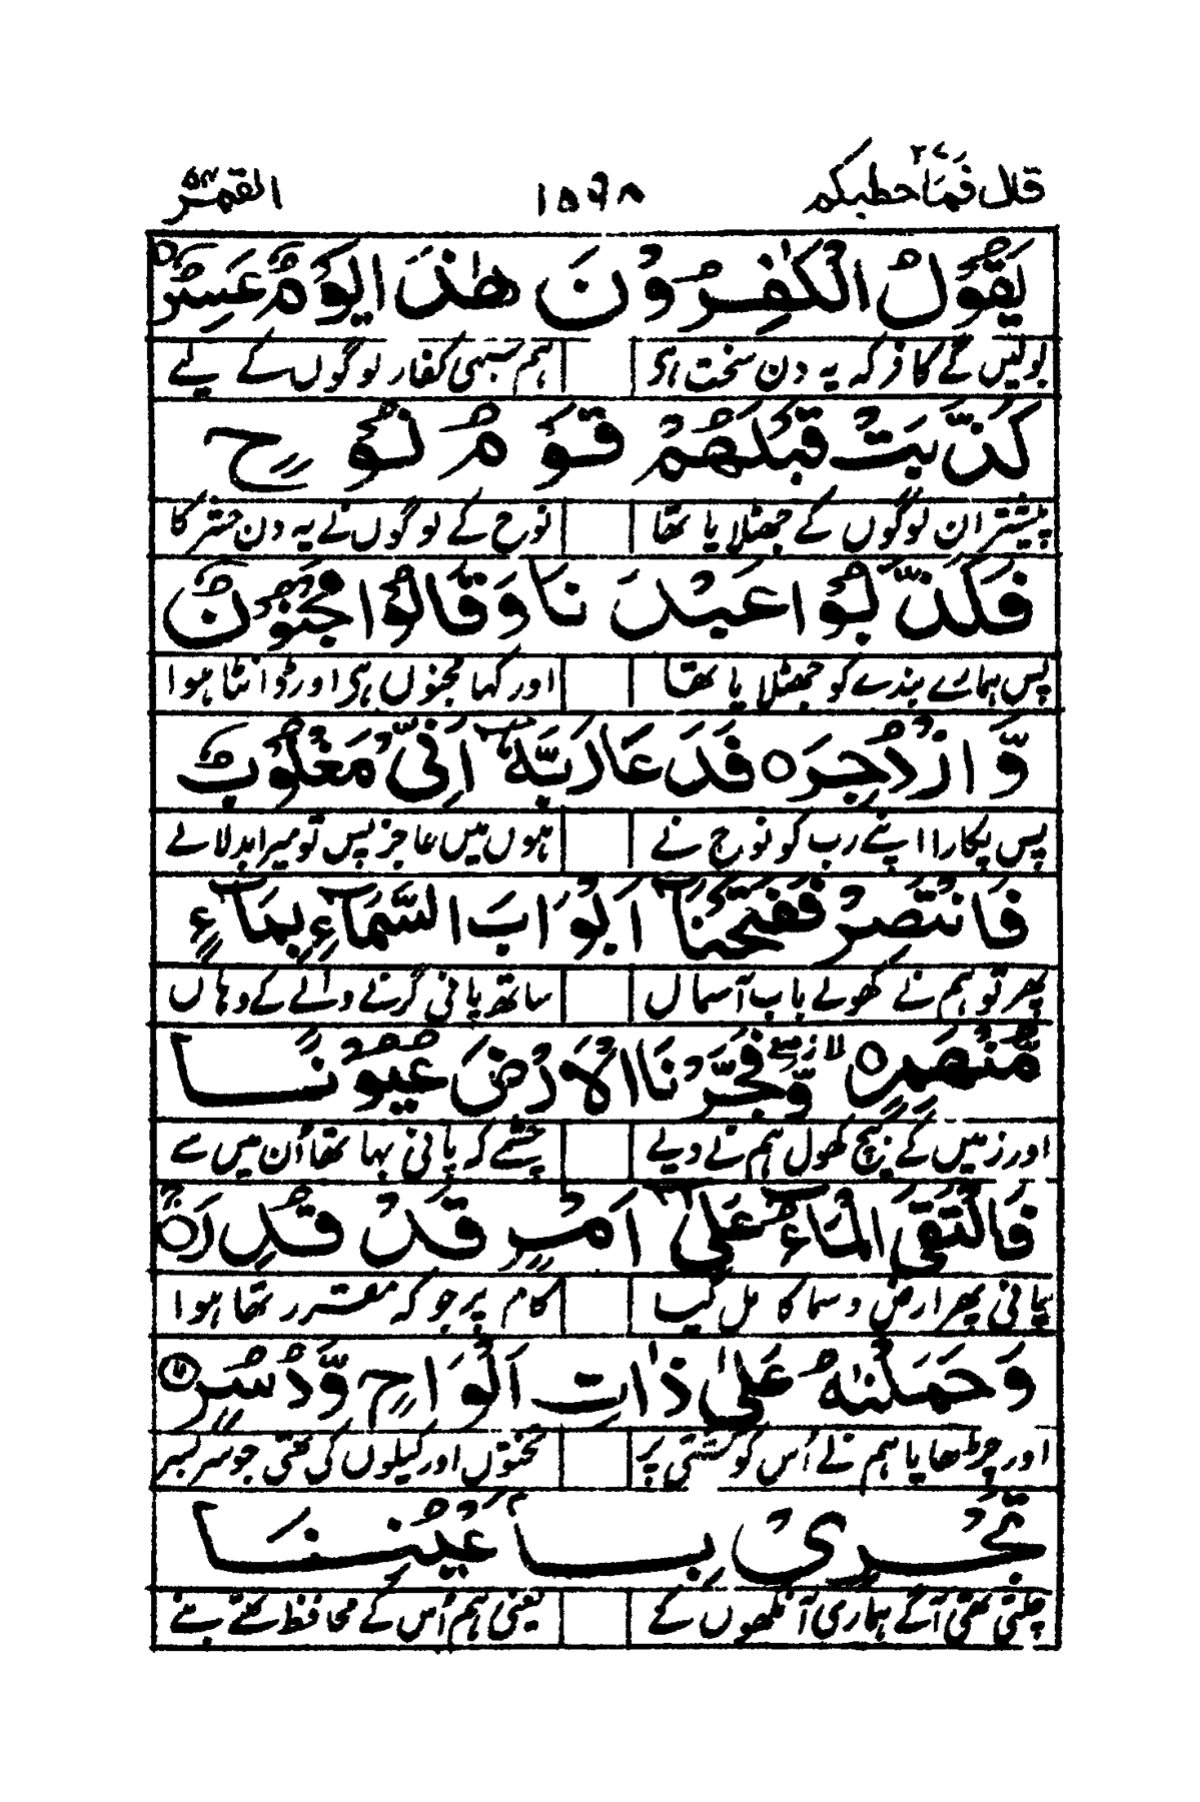 قال فما خطبکم ۲۷ ۱۵۶۸ القمر ۵۴
یَقُوْلُ الْکٰفِرُوْنَ هٰذَا یَوْمٌ عَسِرٌ ٥
بولیں گے کافر کہ یہ دن سخت ہی ہم سبھی کفار لوگوں کے لیے
کَذَّبَتْ قَبْلَهُمْ قَوْمُ نُوْحٍ
پیشتر ان لوگوں کے جھٹلایا تھا نوح کے لوگوں نے یہ دن حشر کا
فَکَذَّبُوْا عَبْدَنَا وَقَالُوْا مَجْنُوْنٌ
پس ہمارے بندے کو جھٹلایا تھا اور کہا مجنوں ہی اور ڈانٹا ہوا
وَّازْدُجِرَ ٥ فَدَعَا رَبَّهٗۤ اَنِّیْ مَغْلُوْبٌ
پس پکارا اپنے رب کو نوح نے ہوں میں عاجز پس تو میرا بدلا لے
فَانْتَصِرْ فَفَتَحْنَاۤ اَبْوَابَ السَّمَآءِ بِمَآءٍ
پھر تو ہم نے کھولے باب آسماں ساتھ پانی گرنے والے کے وہاں
مُّنْهَمِرٍ ٥ لا ز صلے وَّفَجَّرْنَا الْاَرْضَ عُیُوْنًا
اور زمیں کے بیچ کھول ہم نے دیے چشمے کہ پانی بہا تھا اُن میں سے
فَالْتَقَی الْمَآءُ عَلٰۤی اَمْرٍ قَدْ قُدِرَ ٥ ج
پانی پھر ارض و سما کا مل گیا کام پر جو کہ مقرر تھا ہوا
وَحَمَلْنٰهُ عَلٰی ذَاتِ اَلْوَاحٍ وَّدُسُرٍ
اور چڑھایا ہم نے اُس کو کشتی پر تختوں اور کیلوں کی تھی جو سربسر
تَجْرِیْ بِاَعْیُنِنَا
چلتی تھی آگے ہماری آنکھوں کے یعنی ہم اُس کے محافظ تھے بنے